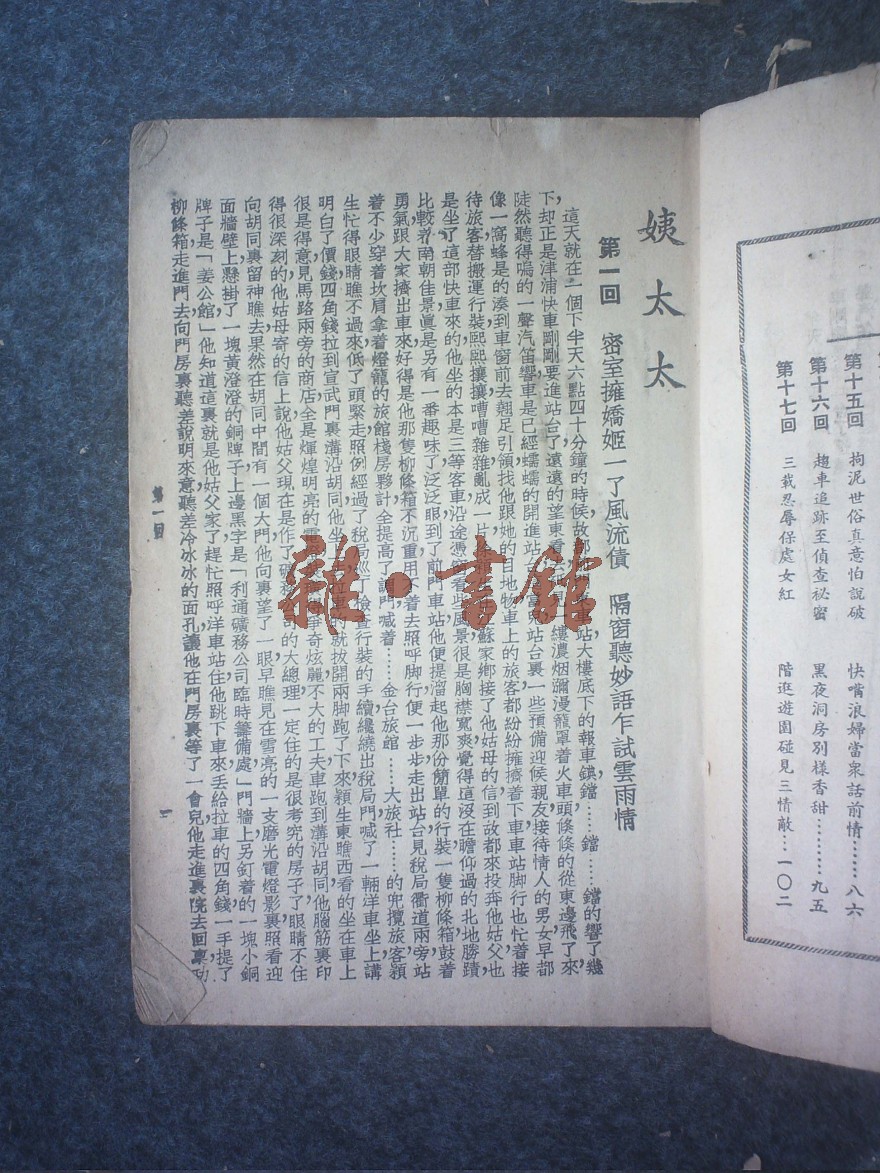 第十五回　拘泥世俗真意怕說破　快嘴浪婦當衆話前情……八六
第十六回　趙車追跡至偵查秘密　黑夜洞房別樣香甜………九五
第十七回　三载忍辱保處女紅　階逛遊園碰見三情敵…一〇二
姨太太
第一回　密室擁嬌姬一了風流債　隔窗聽妙語乍試雲雨情
這天就在一個下半天六點四十分鐘的時候，故都，車站大樓底下的報車鐵鐺……鐺……鐺的響了幾
下，却正是津浦快車剛剛要進站台了，遠遠的望東看，縷濃烟彌漫籠罩着火車頭條條的從東邊飛了來，
陡然聽得嗚的一聲汽笛響，車是已經蠕蠕的開進站台，站台裏一些預備迎候親友接待情人的男女早都
像一窩蜂是的湊到車窗前去翹足引領找他跟她的目地物，車上的旅客都紛紛擁擠着下車，車站脚行也忙着接
待旅客替搬運行裝，熙熙攘攘嘈嘈雜雜亂成一片，蘇家鄉接了他姑母的信到故都來投奔他姑父，也
是坐了這部快車來的，他坐的本是三等客車，沿途憑看些風景很是胸襟寬爽，覺得這没在瞻仰過的北地勝蹟，
比較着南朝佳景眞是另有一番趣味了，泛泛眼到了前門車站，他便提溜起他那份簡單的行裝一隻柳條箱鼓着
勇氣跟大家擠出車來，好得是他那隻柳條箱不沉重，用不着去照呼脚行，便一步步走出站台，見稅局衢道兩旁，站
着不少穿着坎肩拿着燈籠的旅館棧房夥計，全提高了調門喊着……金台旅館……大旅社……的兜攬旅客，穎
生忙得眼睛瞧不過來，低了頭緊走，照例經過了稅局巡丁檢查行裝的手續，纔繞出稅局門，喊了一輛洋車坐上，講
明白了價錢四角錢拉到宣武門裏溝沿胡同，他坐上，拉車的就拔開兩脚跑了下來，穎生東瞧西看的坐在車上
很是得意，見馬路兩旁的商店，全是煇煌明亮的電爭奇炫麗，不大的工夫車跑到溝沿胡同，他腦筋裏印
得很深刻的，他姑母寄的信上說他姑父現在是作了礦務公司的大總理，一定住的是很考究的房子了，眼睛不住
向胡同裏留神瞧去，果然在胡同中間，有一個大門，他向裏望了一眼，早瞧見在雪亮的一支磨光電燈影裏照看迎
面牆壁上懸掛了一塊黃澄澄的銅牌子，上邊黑字是「利通礦務公司臨時籌備處」門牆上另釘着的一塊小銅
牌子是「姜公館」他知道這裏就是他姑父家了，趕忙照呼洋車站住，他跳下車來，丢給拉車的四角錢，一手提了
柳條箱，走進門去，向門房裏聽差說明來意，聽差冷冰冰的面孔，讓他在門房裏等了一會兒，他走進裏院去回禀
第一回
一
雜·書館